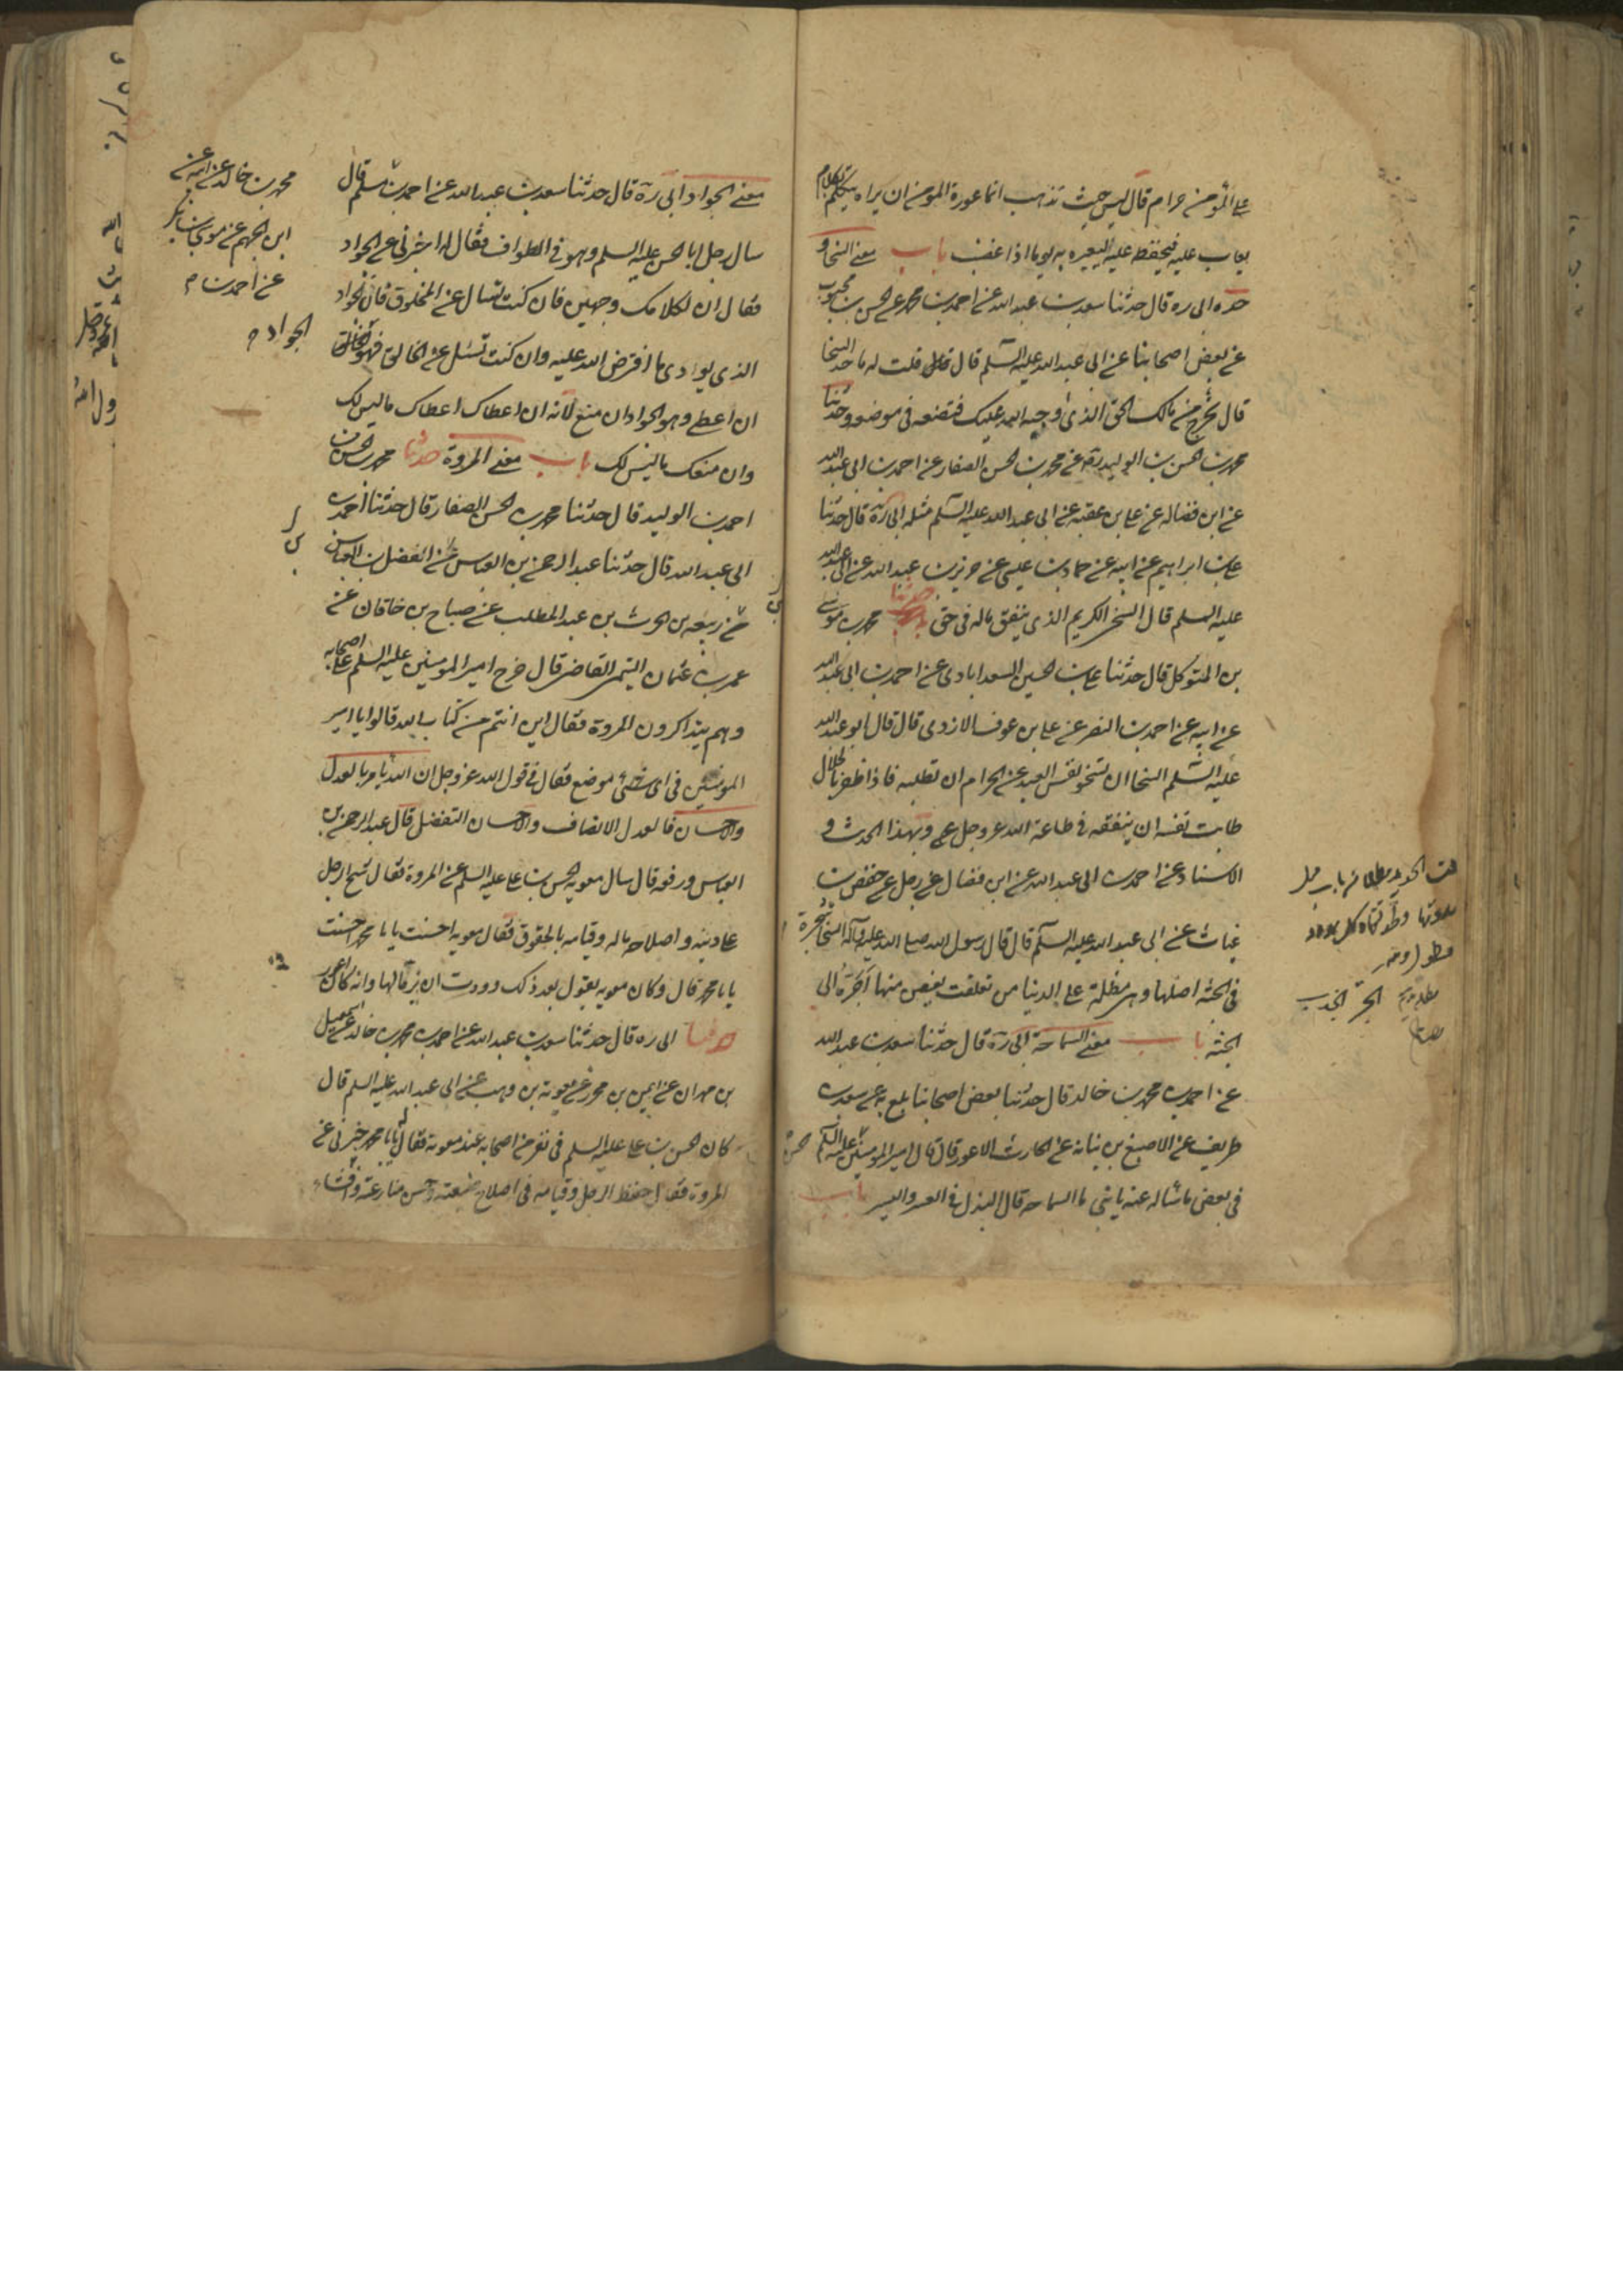 على المؤمن حرام قال ليس حيث تذهب انما عورة المومن ان يراه يتكلم بكلام
يعاب عليه فيحفظه عليه ليعيره به يوما اذا غضب باب معنى السخا و
حده ابى ره قال حدثنا سعد بن عبد الله عن احمد بن محمد عن الحسن بن محبوب
عن بعض اصحابنا عن ابى عبد الله عليه السلم قال قلت له ما حد السخا
قال تخرج من مالك الحق الذى اوجبه الله عليك فتضعه فى موضعه وحدثنا
محمد بن الحسن بن الوليد ره عن محمد بن الحسن الصفار عن احمد بن ابى عبد الله
عن ابن فضاله عن على بن عقبه عن ابى عبد الله عليه السلم مثله ابى ره قال حدثنا
على بن ابراهيم عن ابيه عن حماد بن عيسى عن حريز بن عبد الله عن ابى عبد الله
عليه السلم قال السخى الكريم الذى ينفق ماله فى حق حدثنا محمد بن موسى
بن المتوكل قال حدثنا على بن الحسين السعدابادى عن احمد بن ابى عبد الله
عن ابيه عن احمد بن النضر عن على بن عوف الازدى قال قال ابو عبد الله
عليه السلم السخا ان تسخو نفس العبد عن الحرام ان تطلبه فاذا ظفر بالحلال
طابت نفسه ان ينفقه فى طاعة الله عز وجل وبهذا الحديث و
الاسناد عن احمد بن ابى عبد الله عن ابن فضال عن رجل عن حفص بن
غياث عن ابى عبد الله عليه السلم قال قال رسول الله صلى الله عليه وآله السخا شجرة
فى الجنه اصلها وهى مظلة على الدنيا من تعلقت بغصن منها اجتره الى
الجنه باب معنى السماحة ابى ره قال حدثنا سعد بن عبد الله
عن احمد بن محمد بن خالد قال حدثنا بعض اصحابنا بلغ به عن سعد بن
طريف عن الاصبغ بن نباته عن الحارث الاعور قال قال امير المومنين عليه السلم للحسن
فى بعض ما سأله عنه يا بنى ما السماحه قال البذل فى العسر واليسر باب
الجر الجذب
معنى الجواد ابى ره قال حدثنا سعد بن عبد الله عن احمد بن مسلم قال
سال رجل ابا الحسن عليه السلم وهو فى الطواف فقال له اخبرنى عن الجواد
فقال ان لكلامك وجهين فان كنت تسال عن المخلوق فان الجواد
الذى يودى ما افترض الله عليه وان كنت تسئل عن الخالق فهو الجواد
ان اعطى وهو الجواد ان منع لانه ان اعطاك اعطاك ما ليس لك
وان منعك ما ليس لك باب معنى المروة حدثنا محمد بن الحسن بن
احمد بن الوليد قال حدثنا محمد بن الحسن الصفار قال حدثنا احمد بن
ابى عبد الله قال حدثنا عبد الرحمن بن العباس عن الفضل بن العباس
بن ربيعه بن الحرث بن عبد المطلب عن صباح بن خاقان عن
عمر بن عثمان التيمى القاضى قال خرج امير المومنين عليه السلم على اصحابه
وهم يتذاكرون المروة فقال اين انتم من كتاب الله قالوا يا امير
المومنين فى اى شى موضع فقال فى قول الله عز وجل ان الله يامر بالعدل
والاحسان فالعدل الانصاف والاحسان التفضل قال عبد الرحمن بن
العباس ورفعه قال سال معويه الحسن بن على عليه السلم عن المروة فقال شح الرجل
على دينه واصلاحه ماله وقيامه بالحقوق فقال معويه احسنت يا با محمد احسنت
يا با محمد قال وكان معويه يقول بعد ذلك وددت ان يزيد قالها وانه كان اعور
حدثنا ابى ره قال حدثنا سعد بن عبد الله عن احمد بن محمد بن خالد عن اسمعيل
بن مهران عن ايمن بن محرز عن معويه بن وهب عن ابى عبد الله عليه السلم قال
كان الحسن بن على عليه السلم فى نفر من اصحابه عند معويه فقال له يا با محمد خبرنى عن
المروة فقال حفظ الرجل وقيامه فى اصلاح ضيعته وحسن منازعته وافشاء
محمد بن خالد عن ابيه عن
ابن الجهم عن موسى بن بكر
عن احمد بن م
الجواد م